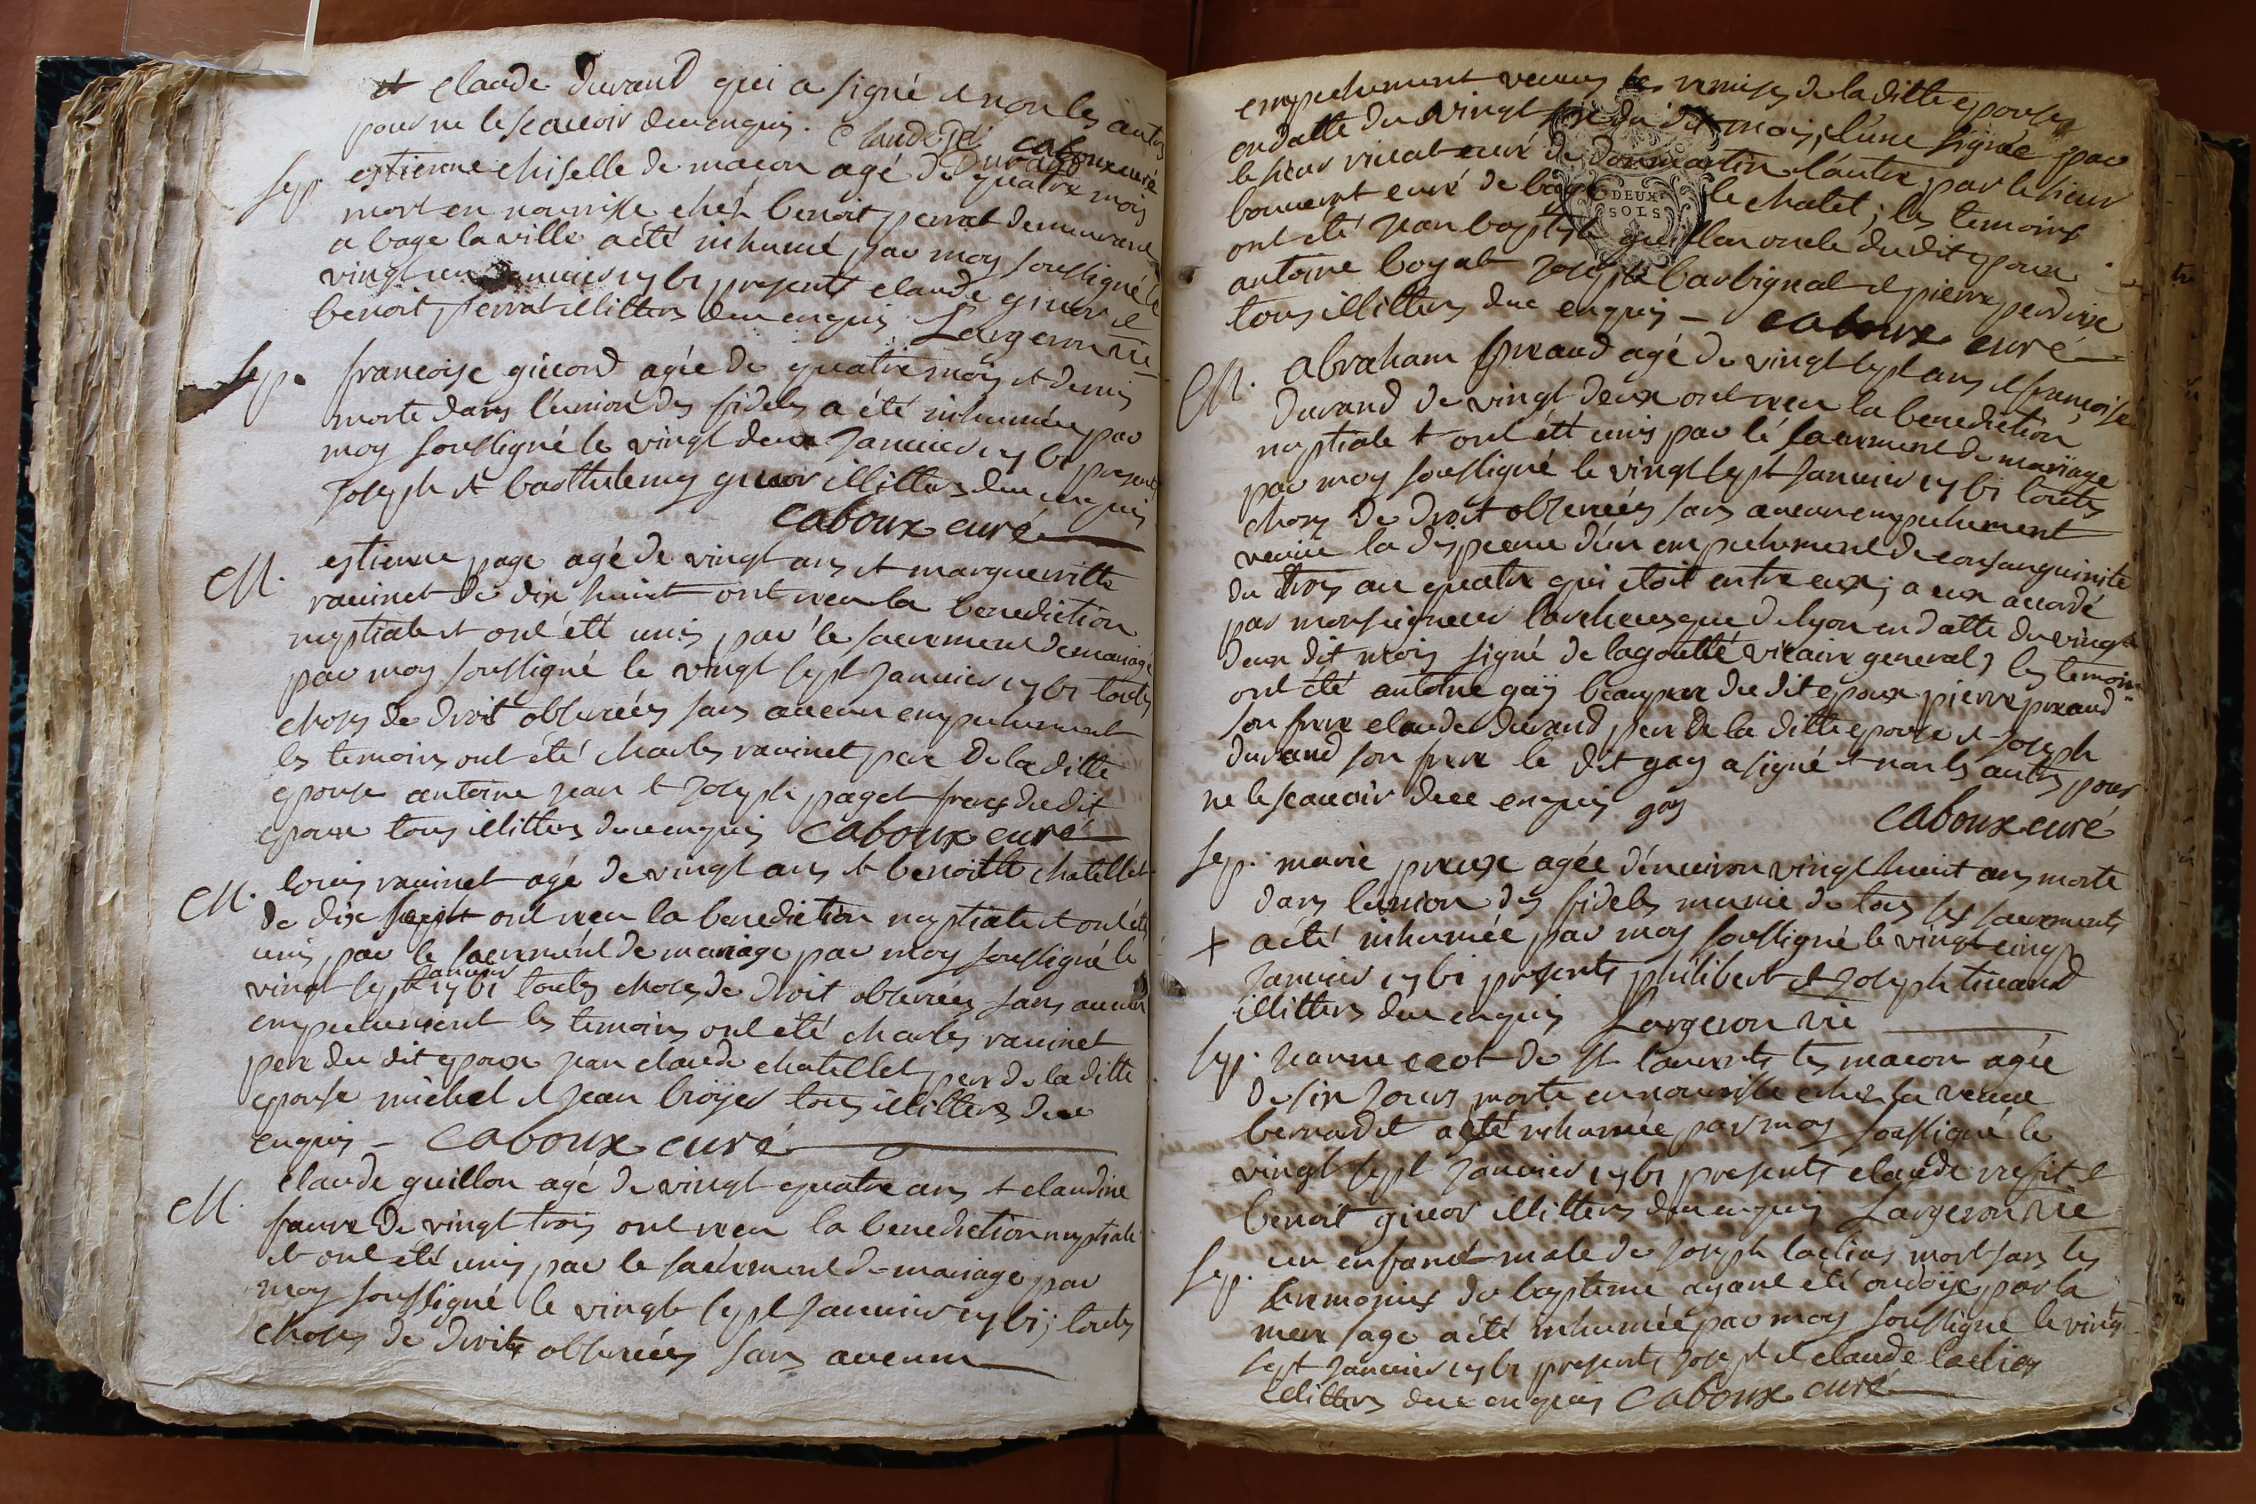 et claude durand qui a signé et non les autres
pour ne le scauoir deuenquis. Claude durand caboux curé
sep. estienne chiselle de macon agé de quatre mois
mort en nourrisse chéz benoit perrat demeurant
a bage la ville a été inhumé par moy soussigné le
vingt un januier 1761 presents claude giuer et
benoit perrat illitterés deuenquis Largeron vic
sep. francoise giuord agée de quatre mois et demis
morte dans l'union des fideles a été inhumée par
moy soussigné le vingt deux januier 1761 presents
joseph et barthelemy giuor illitterés deuenquis
caboux curé
M. estienne page agé de vingt ans et margueritte
rauinet de dix huit ont receu la benediction
nuptiale et ont été unis par le sacrement de mariage
par moy soussigné le vingt sept januier 1761 toutes
choses de droit obseruées sans aucun empechement
les temoins ont été charles rauinet pere de la ditte
epouse antoine jean et joseph paget freres du dit
epoux tous illitterés deuenquis caboux curé
M. louis rauinet agé de vingt ans et benoitte chatellet
de dix sept ont receu la benediction nuptiale et ont été
unis par le sacrement de mariage par moy soussigné le
vingt sept januier 1761 toutes choses de droit obseruées sans aucun
empechement les temoins ont été charles rauinet
pere du dit epoux jean claude chatellet pere de la ditte
epouse michel et jean broyer tous illitterés due
enquis - caboux curé
M. claude guillon agé de vingt quatre ans et claudine
faure de vingt trois ont receu la benediction nuptiale
et ont été unis par le sacrement de mariage par
moy soussigné le vingt sept januier 1761; toutes
choses de droit obseruées sans aucun
empechement veuues les remises de la ditte epouse
en datte du vingt six du dit mois, l'une signée par
le sieur vicat curé de dommartin l'autre par le sieur
bonuent curé de bage le chatel; les temoins
ont été jean baptiste guillon oncle du dit epoux
antoine boyat joseph barbignat et pierre perdrix
tous illitterés due enquis - caboux curé
DEUX
SOLS
M. abraham preaud agé de vingt sept ans et francoise
durand de vingt deux ont receu la benediction
nuptiale et ont été unis par le sacrement de mariage
par moy soussigné le vingt sept januier 1761 toutes
choses de droit obseruées sans aucun empechement
veuüe la dispence d'un empechement de consanguinité
du trois au quatre qui etoit entre eux; a eux accordé
par monseigneur l'archeuesque de lyon en datte du vingt
deux dit mois signé de lagoutte vicaire general, les temoins
ont été antoine gaÿ beaupere du dit epoux pierre preaud
son frere claude durand pere de la ditte epouse et joseph
durand son frere le dit gay a signé et non les autres pour
ne le scauoir due enquis gay
caboux curé
sep. marie preux agée d'enuiron vingt huit ans morte
dans l'union des fideles munie de tous ses sacrements
+ a été inhumée par moy soussigné le vingt cinq
januier 1761 presents philibert et joseph tiuand
illitterés deuenquis Largeron vic
sep. jeanne ecot de st laurents les macon agée
de six jours morte en nourrisse chez la veuue
bernardet a été inhumée par moy soussigné le
vingt sept januier 1761 presents claude et
benoit giuor illitterés deuenquis Largeron vic
sep. un enfant male de joseph laclias mort sans les
ceremonies du bapteme ayant été ondoÿe par la
mere sage a été inhumée par moy soussigné le vingt
sept januier 1761 presents joseph et claude laclias
illitterés due enquis caboux curé